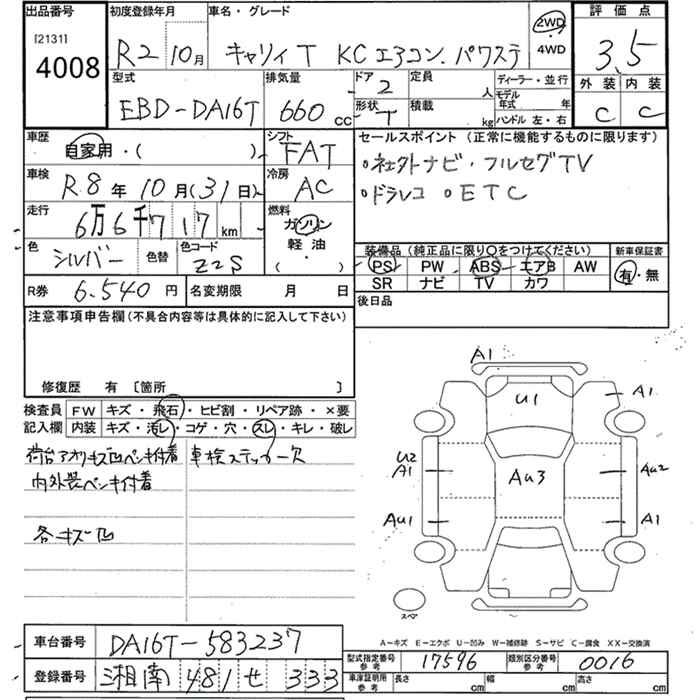 出品番号 初度登録年月 車名・グレード 評価点
[2131]
4008 R2 10月 キャリィ T KC エアコン.パワステ 2WD・4WD 3.5
型式 排気量 ドア 2 定員 人 ディーラー・並行 外装 内装
EBD-DA16T 660 cc 形状 T 積載 kg モデル年式 年 ハンドル 左・右 C C
車歴 自家用・( ) シフト FAT セールスポイント (正常に機能するものに限ります)
車検 R.8年 10月(31日) 冷房 AC ○社外ナビ・フルセグTV
走行 6万6千717km 燃料 ガソリン 軽油 ( ) ○ドラレコ ○ETC
色 シルバー 色替 色コード Z2S 装備品 (純正品に限り○をつけてください) 新車保証書
PS PW ABS エアB AW 有・無
SR ナビ TV カワ
R券 6.540円 名変期限 月 日 後日品
注意事項申告欄(不具合内容等は具体的に記入して下さい)
修復歴 有 [箇所 ]
検査員記入欄 FW キズ・飛石・ヒビ割・リペア跡・×要
内装 キズ・汚レ・コゲ・穴・スレ・キレ・破レ
荷台アオリキズ凹ペンキ付着 車検ステッカー欠
内外装ペンキ付着
各キズ凹
A1
U1 A1
U2
A1 Au3 Au2
Au1 A1
スペ
A-キズ E-エクボ U-凹み W-補修跡 S-サビ C-腐食 XX-交換済
車台番号 DA16T-583237
型式指定番号 参考 17596 類別区分番号 参考 0016
登録番号 湘南 481 せ 333
車庫証明用 参考 長さ cm 幅 cm 高さ cm